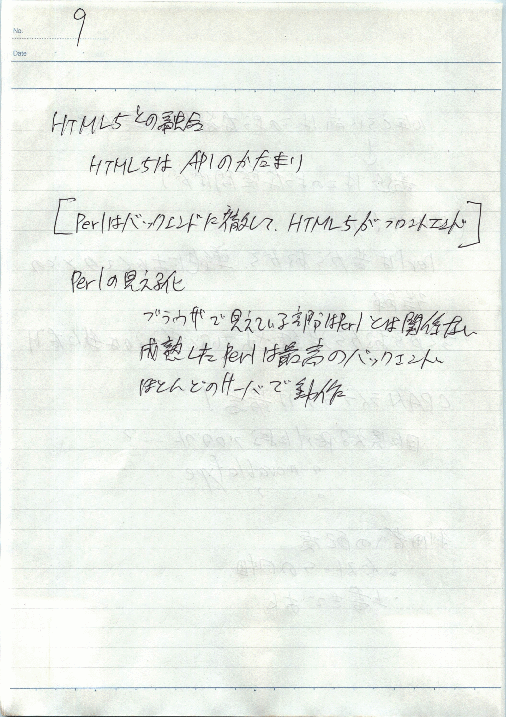 No. 9
Date
HTML5との融合
HTML5は APIのかたまり
[Perlはバックエンドに徹して、HTML5がフロントエンド]
Perlの見える化
ブラウザで見えている部分はPerlとは関係ない
成熟したPerlは最高のバックエンド
ほとんどのサーバで動作